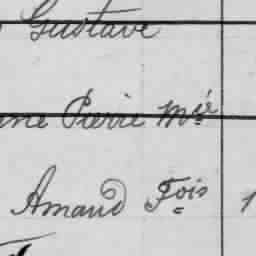 Gustave
ne Pierre Mie
Amand Fois 1